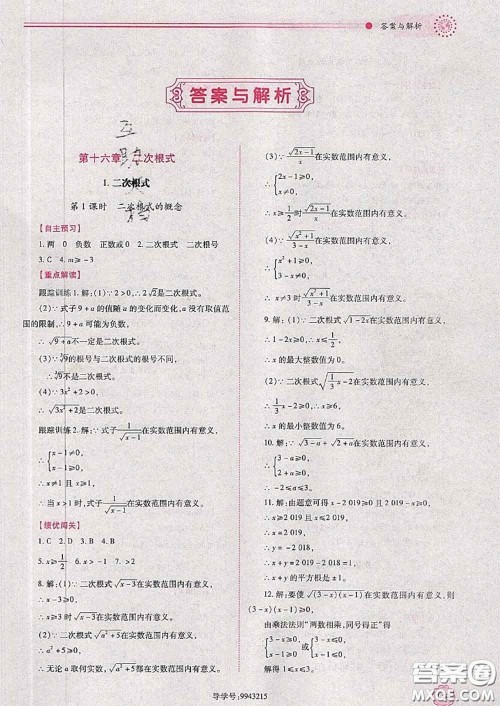 答案与解析
答案与解析
第十六章 二次根式
1. 二次根式
第1课时 二次根式的概念
【自主预习】
1. 两 0 负数 正数或0 2. 二次根式 二次根号
3. C 4. m≥-3
【重点解读】
跟踪训练1. 解:(1)∵2>0,∴2√2是二次根式.
(2)∵式子9+a的值随a的变化而变化,a没有取值范
围的限制,∴9+a可能为负数,
∴√(9+a)不一定是二次根式.
的根号与二次根式的根号不同,
不是二次根式.
是二次根式.
跟踪训练2. 解:∵式子1/√(x-1)在实数范围内有意义,
∴x≠1且x≥1
∴当x>1时,式子1/√(x-1)在实数范围内有意义.
【绩优闯关】
1. C 2. D 3. B 4. B
5. x≥1/2 6. x>-1 7. x>2
8. 解:(1)∵二次根式√(x-3)在实数范围内有意义,
∴x-3≥0,∴x≥3
∴x≥3时√(x-3)在实数范围内有意义.
(2)∵二次根式√(a²+5)在实数范围内有意义,
∴无论a取何实数,√(a²+5)都在实数范围内有意义.
(3)∵√(2x-1)/x在实数范围内有意义,
∴{2x-1≥0 x≠0
∴x≥1/2时√(2x-1)/x在实数范围内有意义.
(4)∵√(x²+1)/(3-x)在实数范围内有意义,
∴{x²+1≥0 3-x≠0
∴x≠3
∴x≠3时√(x²+1)/(3-x)在实数范围内有意义.
9. 解:(1)∵二次根式√(1-2x)在实数范围内有意义,
∴1-2x≥0,∴x≤1/2
∴x的最大整数值为0.
∴x的最小整数值为6.
10. 解:∵√(3-a)+√(2+a)在实数范围内有意义,
∴{3-a≥0 2+a≥0
∴-2≤a≤3
11. 解:由题意可得x-2 019≥0且x-2 019≤0
∴x≥2 019且x≤2 019
∴x=2 019,∴y=-2 018
∴x+y=2 019-2 018=1
∴x+y的平方根是±1.
12. 解:要使√((3-x)(x-1))在实数范围内有意义,则
(3-x)(x-1)≥0
由乘法法则“两数相乘,同号得正”得
解得1≤x≤3.
导学号:9943215
答案圈
MXQE.COM